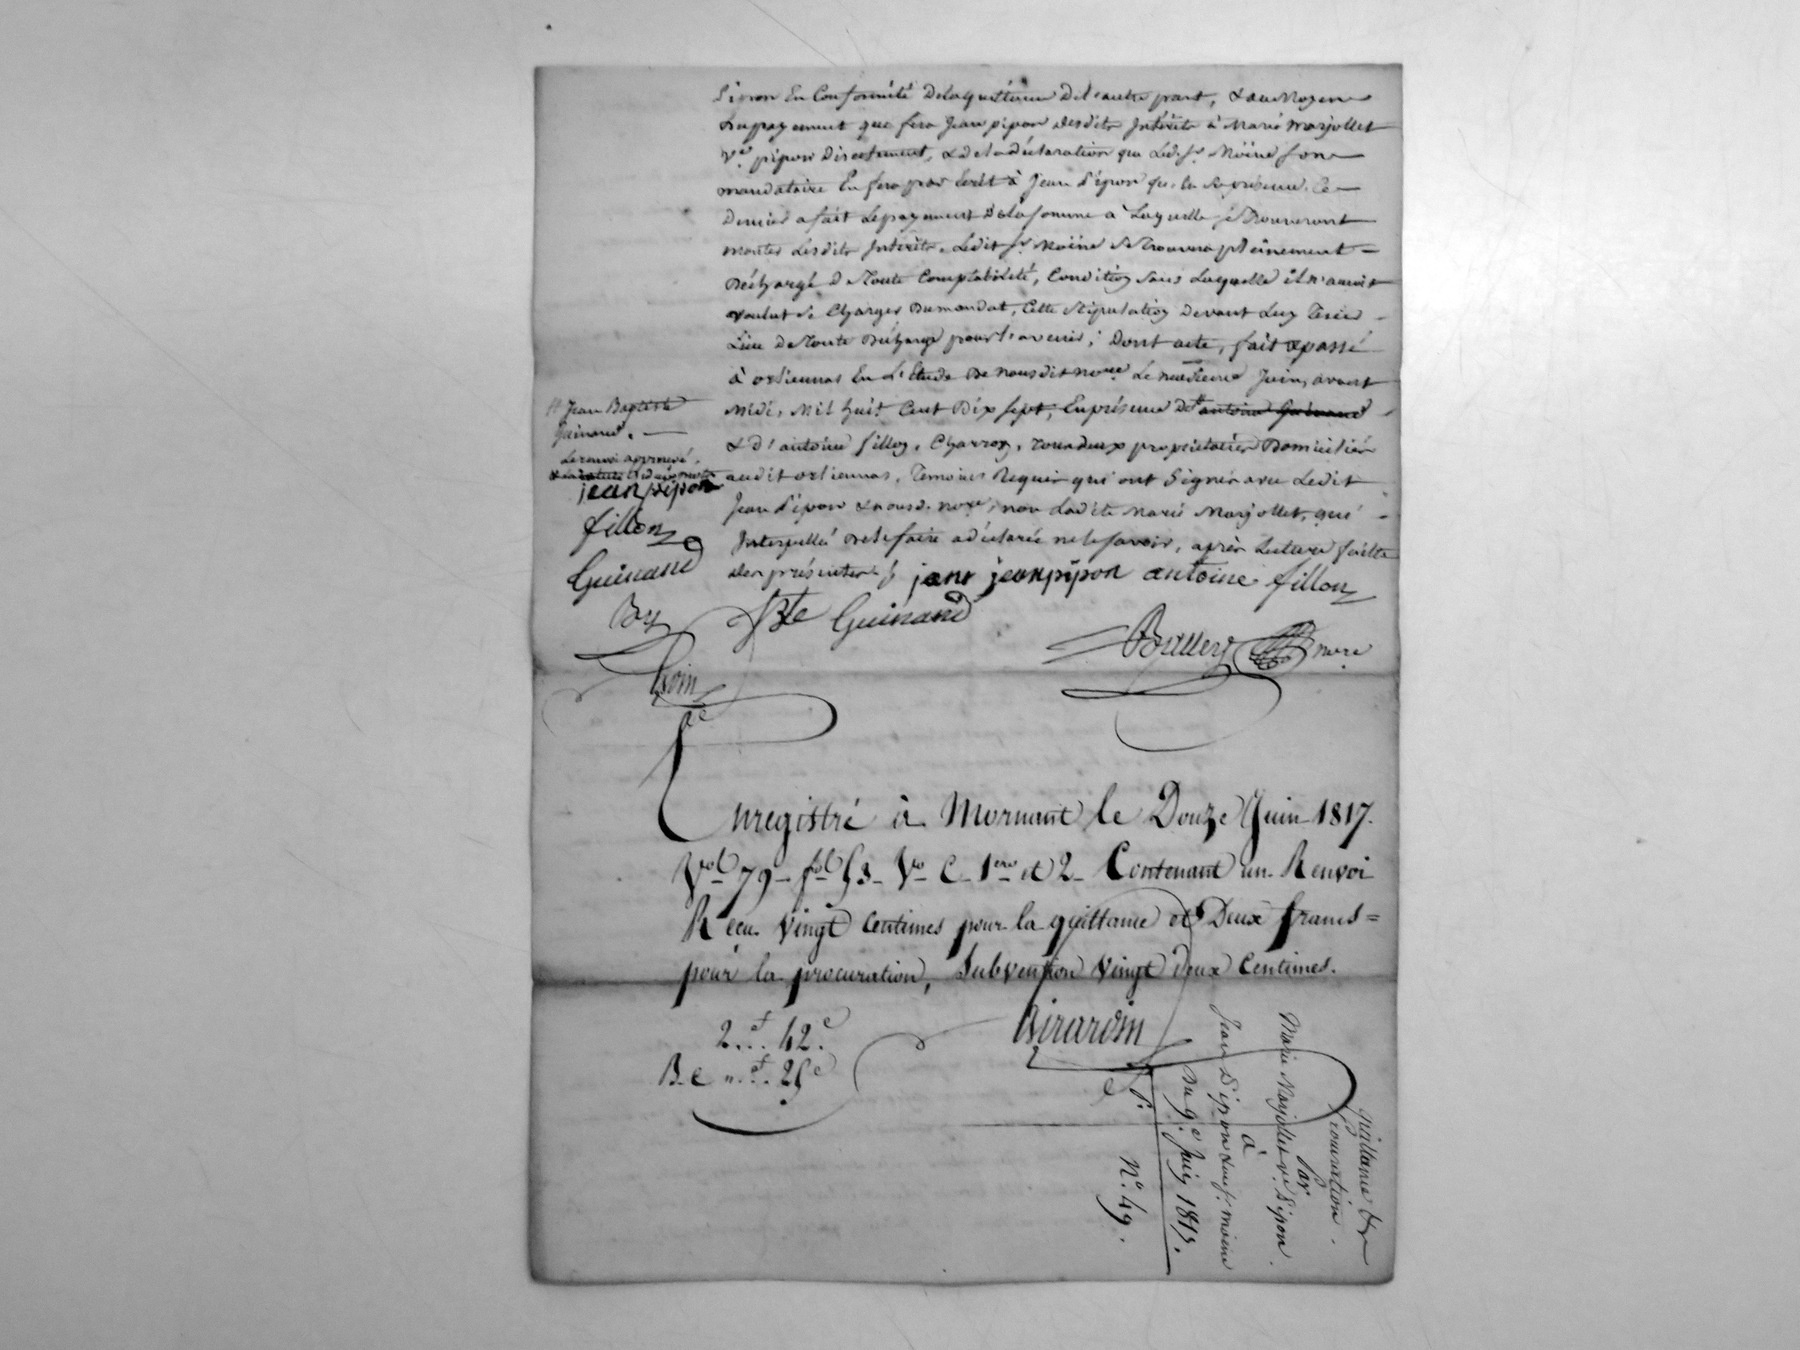 Pipon En Conformité Delaquittance Del'autre part, & au Moyen
Dupayement que fera Jean pipon desdits Intérêts à Marie Marjollet
Ve. pipon Directement, & de la déclaration que Led. Sr. Moine son
mandataire En fera par Ecrit à Jean Pipon que En Sa présence, Ce
Dernier a fait Lepayement Delasomme à Laquelle se Trouveront
monter Lesdits Intérêts, Ledit Sr. Moine se Trouvera pleinement
Déchargé de Toute Comptabilité, Condition Sans Laquelle il n'auroit
voulut se Charger Dumandat, Cette Stipulation Devant Luy Tenir
Lieu de Toute Décharge pour l'avenir; Dont acte, fait & passé
à orliennas En L'Etude De nousdit nore. Le neuvieme Juin, avant
Midi, Mil huit Cent Dix Sept, En présence De antoine Guinand
& D'antoine fillon, Charron, Tous deux propriétaires Domiciliés
audit orliennas, Temoins Requis qui ont Signés avec Ledit
Jean Pipon & nousd. nore, non Ladite Marie Marjollet, qui
Interpellée de le faire a déclarée ne le savoir, après Lecture faitte
des présentes
jean pipon antoine fillon
Jean Baptiste
Guinand.
Le renvoi approuvé,
jean pipon
fillon
Guinand
By
JBte Guinand
Ballery nore
Enregistré à Mornant le Douze Juin 1817.
Vol 79 fol 53 Vo C 1ere et 2 Contenant un Renvoi
Reçu vingt Centimes pour la quittance et Deux francs
pour la procuration, Subvention vingt deux Centimes.
Girardin
2f.. 42c.
25c
Quittance &
Procuration.
Par
Marie Marjollet ve. Pipon.
à
Jean Pipon & au Sr. moine
Du 9e. Juin 1817.
N°. 49.